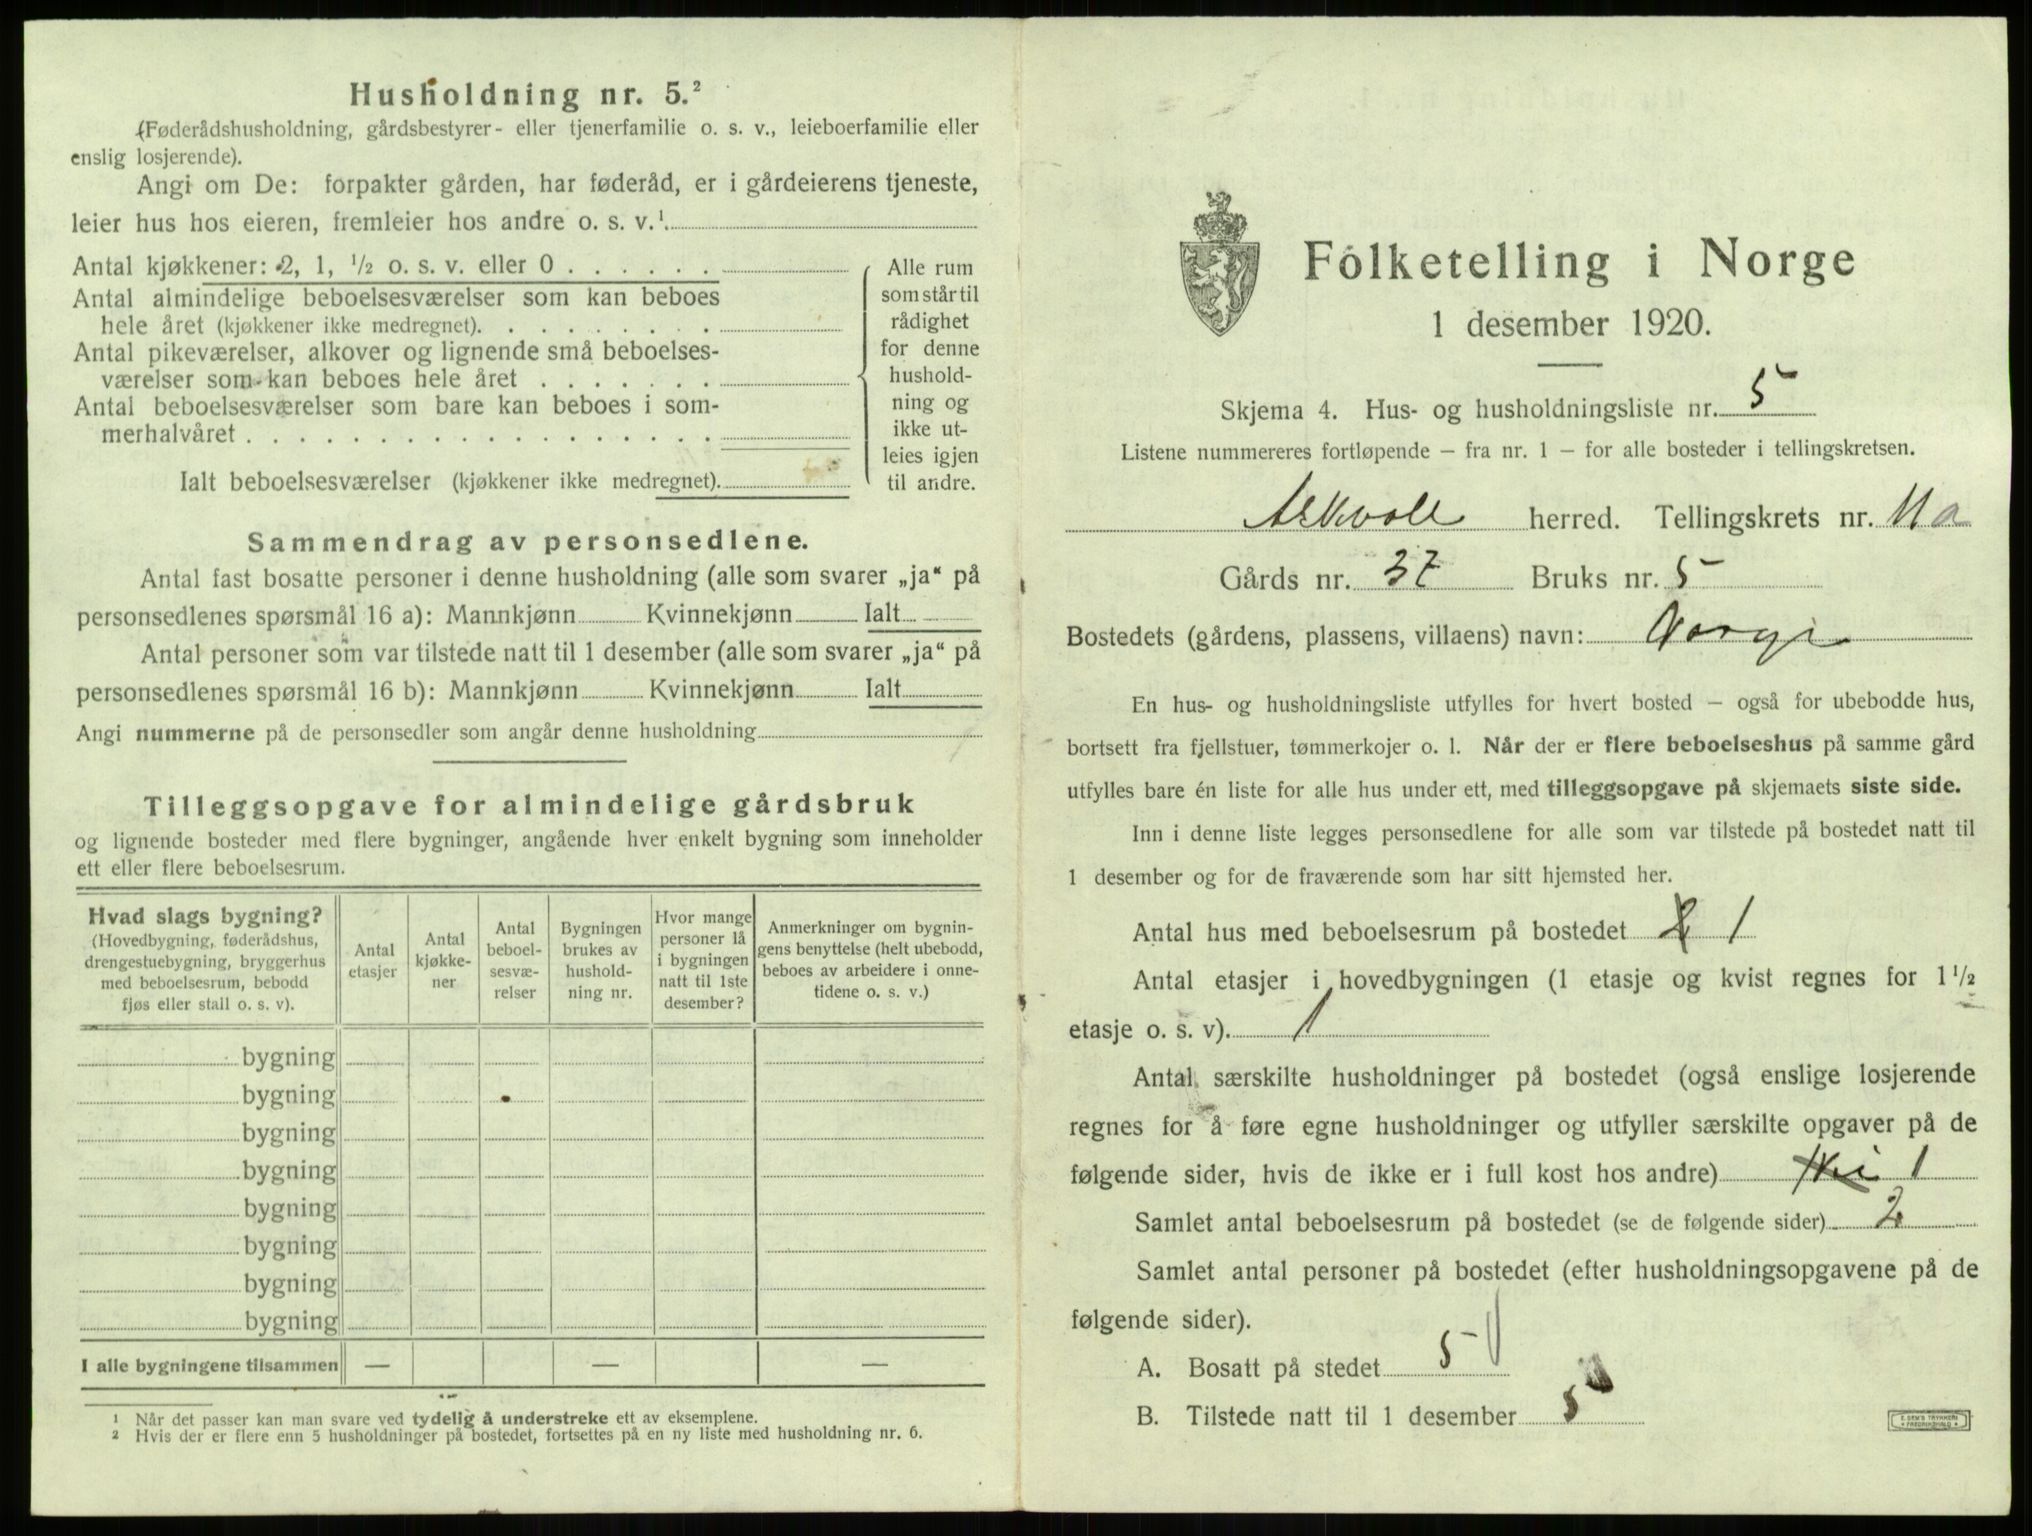 Husholdning nr. 5.²
(Føderådshusholdning, gårdsbestyrer- eller tjenerfamilie o. s. v., leieboerfamilie eller
enslig losjerende).
Angi om De: forpakter gården, har føderåd, er i gårdeierens tjeneste,
leier hus hos eieren, fremleier hos andre o. s. v.¹.
Antal kjøkkener: 2, 1, ½ o. s. v. eller 0
Antal almindelige beboelsesværelser som kan beboes
hele året (kjøkkener ikke medregnet).
Antal pikeværelser, alkover og lignende små beboelses-
værelser som kan beboes hele året
Antal beboelsesværelser som bare kan beboes i som-
merhalvåret
Ialt beboelsesværelser (kjøkkener ikke medregnet).
Alle rum
som står til
rådighet
for denne
hushold-
ning og
ikke ut-
leies igjen
til andre.
Sammendrag av personsedlene.
Antal fast bosatte personer i denne husholdning (alle som svarer „ja“ på
personsedlenes spørsmål 16 a): Mannkjønn Kvinnekjønn Ialt
Antal personer som var tilstede natt til 1 desember (alle som svarer „ja“ på
personsedlenes spørsmål 16 b): Mannkjønn Kvinnekjønn Ialt
Angi nummerne på de personsedler som angår denne husholdning
Tilleggsopgave for almindelige gårdsbruk
og lignende bosteder med flere bygninger, angående hver enkelt bygning som inneholder
ett eller flere beboelsesrum.
Hvad slags bygning?
(Hovedbygning, føderådshus,
drengestuebygning, bryggerhus
med beboelsesrum, bebodd
fjøs eller stall o. s. v).
Antal
etasjer
Antal
kjøkke-
ner
Antal
beboel-
sesvæ-
relser
Bygningen
brukes av
hushold-
ning nr.
Hvor mange
personer lå
i bygningen
natt til 1ste
desember?
Anmerkninger om bygnin-
gens benyttelse (helt ubebodd,
beboes av arbeidere i onne-
tidene o. s. v.)
bygning
bygning
bygning
bygning
bygning
bygning
bygning
bygning
I alle bygningene tilsammen — — —
¹ Når det passer kan man svare ved tydelig å understreke ett av eksemplene.
² Hvis der er flere enn 5 husholdninger på bostedet, fortsettes på en ny liste med husholdning nr. 6.
Folketelling i Norge
1 desember 1920.
Skjema 4. Hus- og husholdningsliste nr. 5
Listene nummereres fortløpende – fra nr. 1 – for alle bosteder i tellingskretsen.
Askvoll herred. Tellingskrets nr. 11a
Gårds nr. 37 Bruks nr. 5
Bostedets (gårdens, plassens, villaens) navn: Norge
En hus- og husholdningsliste utfylles for hvert bosted – også for ubebodde hus,
bortsett fra fjellstuer, tømmerkojer o. l. Når der er flere beboelseshus på samme gård
utfylles bare én liste for alle hus under ett, med tilleggsopgave på skjemaets siste side.
Inn i denne liste legges personsedlene for alle som var tilstede på bostedet natt til
1 desember og for de fraværende som har sitt hjemsted her.
Antal hus med beboelsesrum på bostedet 2 1
Antal etasjer i hovedbygningen (1 etasje og kvist regnes for 1½
etasje o. s. v). 1
Antal særskilte husholdninger på bostedet (også enslige losjerende
regnes for å føre egne husholdninger og utfyller særskilte opgaver på de
følgende sider, hvis de ikke er i full kost hos andre) 1
Samlet antal beboelsesrum på bostedet (se de følgende sider) 2
Samlet antal personer på bostedet (efter husholdningsopgavene på de
følgende sider).
A. Bosatt på stedet 5
B. Tilstede natt til 1 desember 5
E. SEM'S TRYKKERI
FREDRIKSHALD